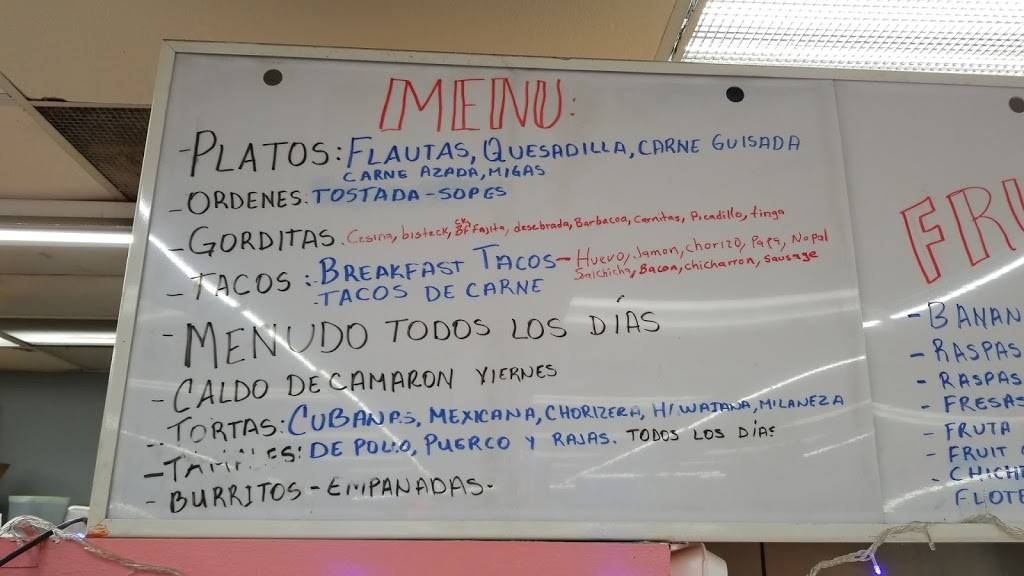 MENU:
-PLATOS: FLAUTAS, QUESADILLA, CARNE GUISADA
CARNE AZADA, MIGAS
-ORDENES: TOSTADA-SOPES
-GORDITAS. Cesina, bisteck, CK BF Fajita, desebrada, Barbacoa, Carnitas, Picadillo, tinga
-TACOS: BREAKFAST TACOS- Huevo, Jamon, chorizo, Papa, Nopal
Salchicha, Bacon, chicharron, Sausage
TACOS DE CARNE
-MENUDO TODOS LOS DÍAS
-CALDO DE CAMARON VIERNES
-TORTAS: CUBANAS, MEXICANA, CHORIZERA, HIWAIANA, MILANEZA
-TAMALES: DE POLLO, PUERCO Y RAJAS. TODOS LOS DÍAS
-BURRITOS-EMPANADAS-
FRU
-BANAN
-RASPAS
-RASPAS
-FRESAS
-FRUTA
-FRUIT
-CHICH
FLOTE